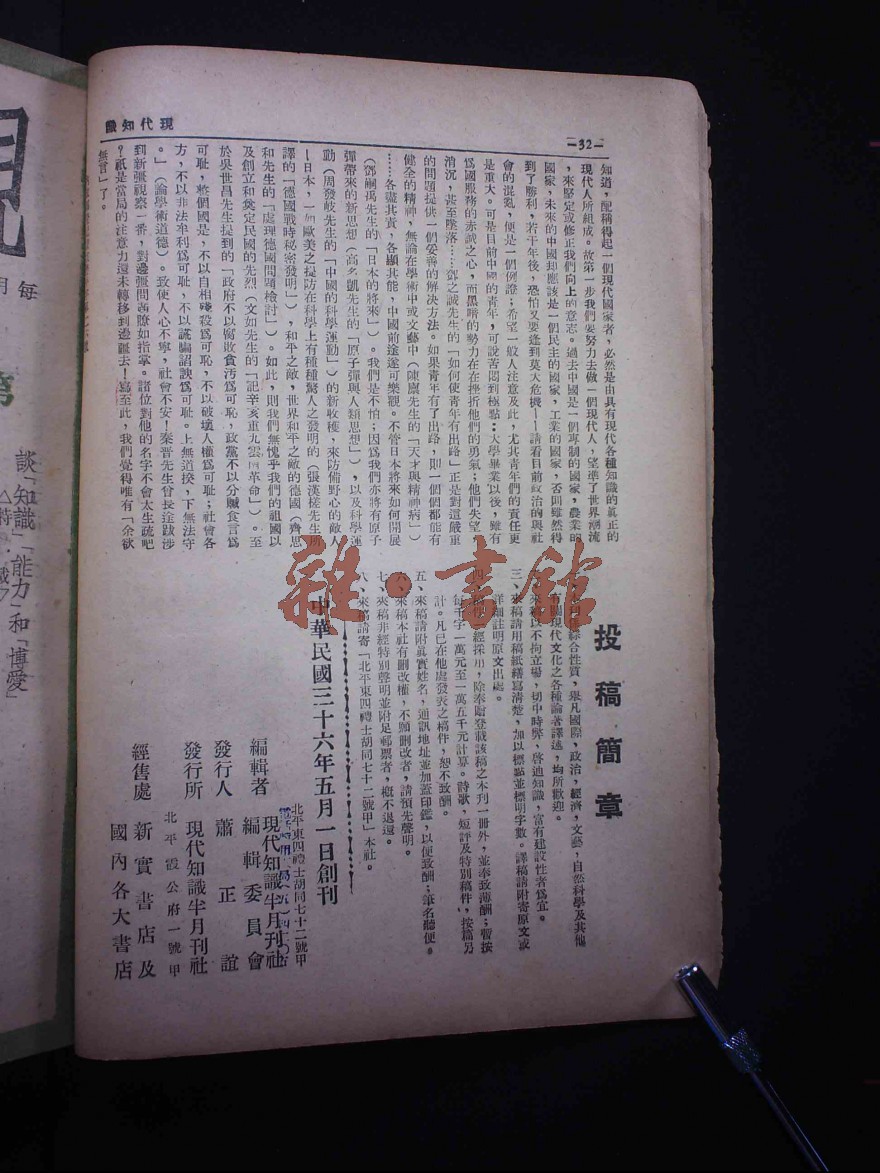 現代知識
—32—
知道,配稱得起一個現代國家者,必然是由具有現代各種知識的眞正的
現代人所組成。故第一步我們要努力去做一個現代人,望準了世界潮流
,來堅定或修正我們向上的意志。過去中國是一個專制的國家,農業的
國家,未來的中國却應該是一個民主的國家,工業的國家,否則雖然得
到了勝利,若干年後,恐怕又要逢到莫大危機——請看目前政治的與社
會的混亂,便是一個例證;希望一般人注意及此,尤其青年們的責任更
是重大。可是目前中國的青年,可說苦悶到極點:大學畢業以後,雖有
爲國服務的赤誠之心,而黑暗的勢力在在挫折他們的勇氣;他們失望,
消沉,甚至墮落……鄧之誠先生的「如何使青年有出路」正是對這嚴重
的問題提供一個妥善的解決方法。如果青年有了出路,則一個個都能有
健全的精神,無論在學術中或文藝中(陳𤋮先生的「天才與精神病」)
……各盡其責,各顯其能,中國前途遂可樂觀。不管日本將來如何開展
(鄧嗣禹先生的「日本的將來」)。我們是不怕;因爲我們亦將有原子
彈帶來的新思想(高名凱先生的「原子彈與人類思想」),以及科學運
動(周發岐先生的「中國的科學運動」)的新收穫,來防備野心的敵人
—日本,一如歐美之提防在科學上有種種驚人之發明的(張漢槎先生所
譯的「德國戰時秘密發明」),和平之敵,世界和平之敵的德國(齊思
和先生的「處理德國問題檢討」)。如此,則我們無愧乎我們的祖國以
及創立和奠定民國的先烈(文如先生的「記辛亥重九雲南革命」)。至
於吳世昌先生提到的「政府不以腐敗貪汚爲可恥,政黨不以分贓食言爲
可恥,整個國是,不以自相殘殺爲可恥,不以破壞人權爲可恥;社會各
方,不以非法牟利爲可恥,不以謊騙諂諛爲可恥。上無道揆,下無法守
。」(論學術道德)。致使人心不寧,社會不安!秦晋先生曾長途跋涉
到新疆視察一番,對邊疆問題瞭如指掌。諸位對他的名字不會太生疏吧
?祇是當局的注意力還未轉移到邊疆去!寫至此,我們覺得唯有「余欲
無言」了。
投稿簡章
綜合性質,舉凡國際,政治,經濟,文藝,自然科學及其他
有關現代文化之各種論著譯述,均所歡迎。
來稿以不拘立場,切中時弊,啓迪知識,富有建設性者爲宜。
三、來稿請用稿紙繕寫清楚,加以標點並標明字數。譯稿請附寄原文或
詳細註明原文出處。
四、稿件一經採用,除奉贈登載該稿之本刊一冊外,並奉致薄酬;暫按
每千字一萬元至一萬五千元計算。詩歌,短評及特別稿件,按篇另
計。凡已在他處發表之稿件,恕不致酬。
五、來稿請附眞實姓名,通訊地址並加蓋印鑑,以便致酬;筆名聽便。
六、來稿本社有删改權,不願删改者,請預先聲明。
七、來稿非經特別聲明並附足郵票者,槪不退還。
八、來稿請寄「北平東四禮士胡同七十二號甲」本社。
中華民國三十六年五月一日創刊
北平東四禮士胡同七十二號甲
編輯者 現代知識半月刊社
編輯委員會
發行人 蕭正誼
發行所 現代知識半月刊社
北平霞公府一號甲
經售處 新實書店及
國內各大書店
雜·書館
每月
談「知識」「能力」和「博愛」